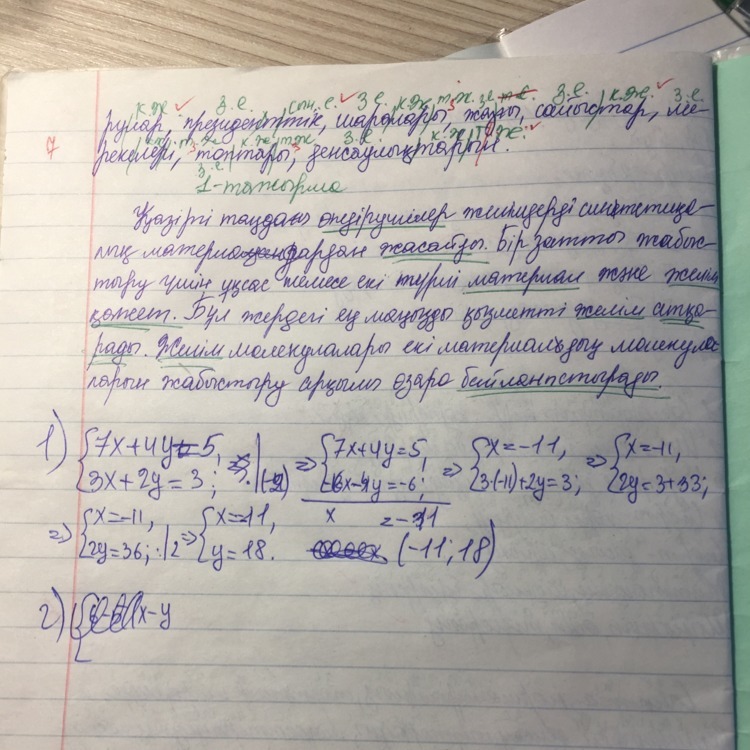 к.ж з.е. сын.е. з.е. к.ж т.ж. з.е з.е. к.ж. з.е
рулар, президенттік, шаралары, жазы, сайыстар, ме-
з.е. к.ж т.ж з.е к.ж т.ж.
рекелері, топтары, денсаулықтарын.
7
1-тапсырма
Қазіргі таңда өндірушілер желімдерді синтетика-
лық материалдардан жасайды. Бір затты жабыс-
тыру үшін ұқсас немесе екі түрлі материал және желім
қажет. Бұл жердегі ең маңызды қызметті желім атқа-
рады. Желім молекулалары екі материалдың молекула-
ларын жабыстыру арқылы өзара байланыстырады.
1) {7x+4y=5, => {7x+4y=5, => {x=-11, => {x=-11,
3x+2y=3; |(-2) -6x-4y=-6; 3·(-11)+2y=3; 2y=3+33;
x =-11
=> {x=-11, => {x=-11,
2y=36; :|2 y=18. (-11; 18)
2) { x-y